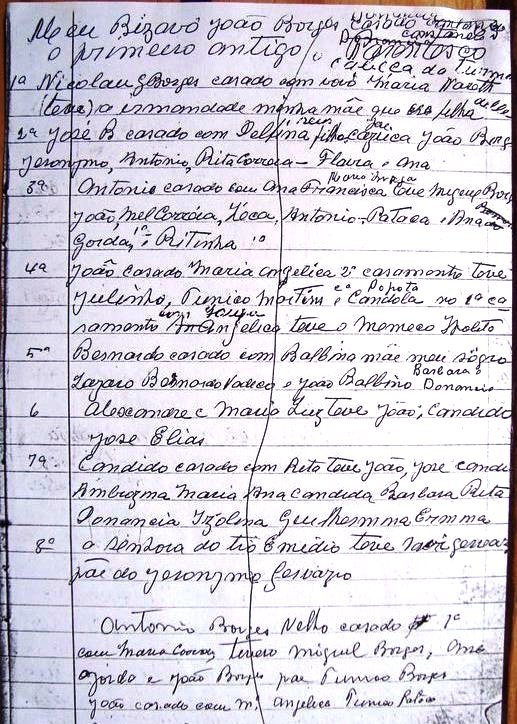 Meu Bizavô João Borges casado Antonia
o primeiro antigo
1ª Nicolau Borges casado com vovó Maria
(teve) a irmandade minha mãe que filha della
2ª José B casado com Delfina João Borges
Jeronymo, Antonio, Rita Correia - Flavia e Ana
Maria
3ª Antonio casado com Ana Francisca teve Miguel Borges
João, Mel Correia, Zeca, Antonio Pataca e Ana
Gorda, 1ª e Ritinha 1º
4ª João casado Maria Angelica 2º casamento teve
Julinho, Tunico Martim e Candola no 1º ca
samento com Angelica teve o Memeco Ipolito
5ª Bernardo casado com Balbina mãe meu sôgro
Barbara e
Lazaro Bernardo e João Balbino Donancio
6 Alexandre c Maria Luz teve João, Candido
José Elias
7ª Candido casado com Rita teve João, José Candi
Ambrozina Maria Ana Candida Barbara Rita
Donancia Izolina Guilhermina Ermina
8º a senhora do tio Emidio teve
pãe do Jeronymo Gervazio
Antonio Borges Netto casado 1º
com Maria Correia, tevero Miguel Borges, Ana
Gorda e João Borges pae Tunico Borges
João casado com Mª Angelica Tunico Pataca